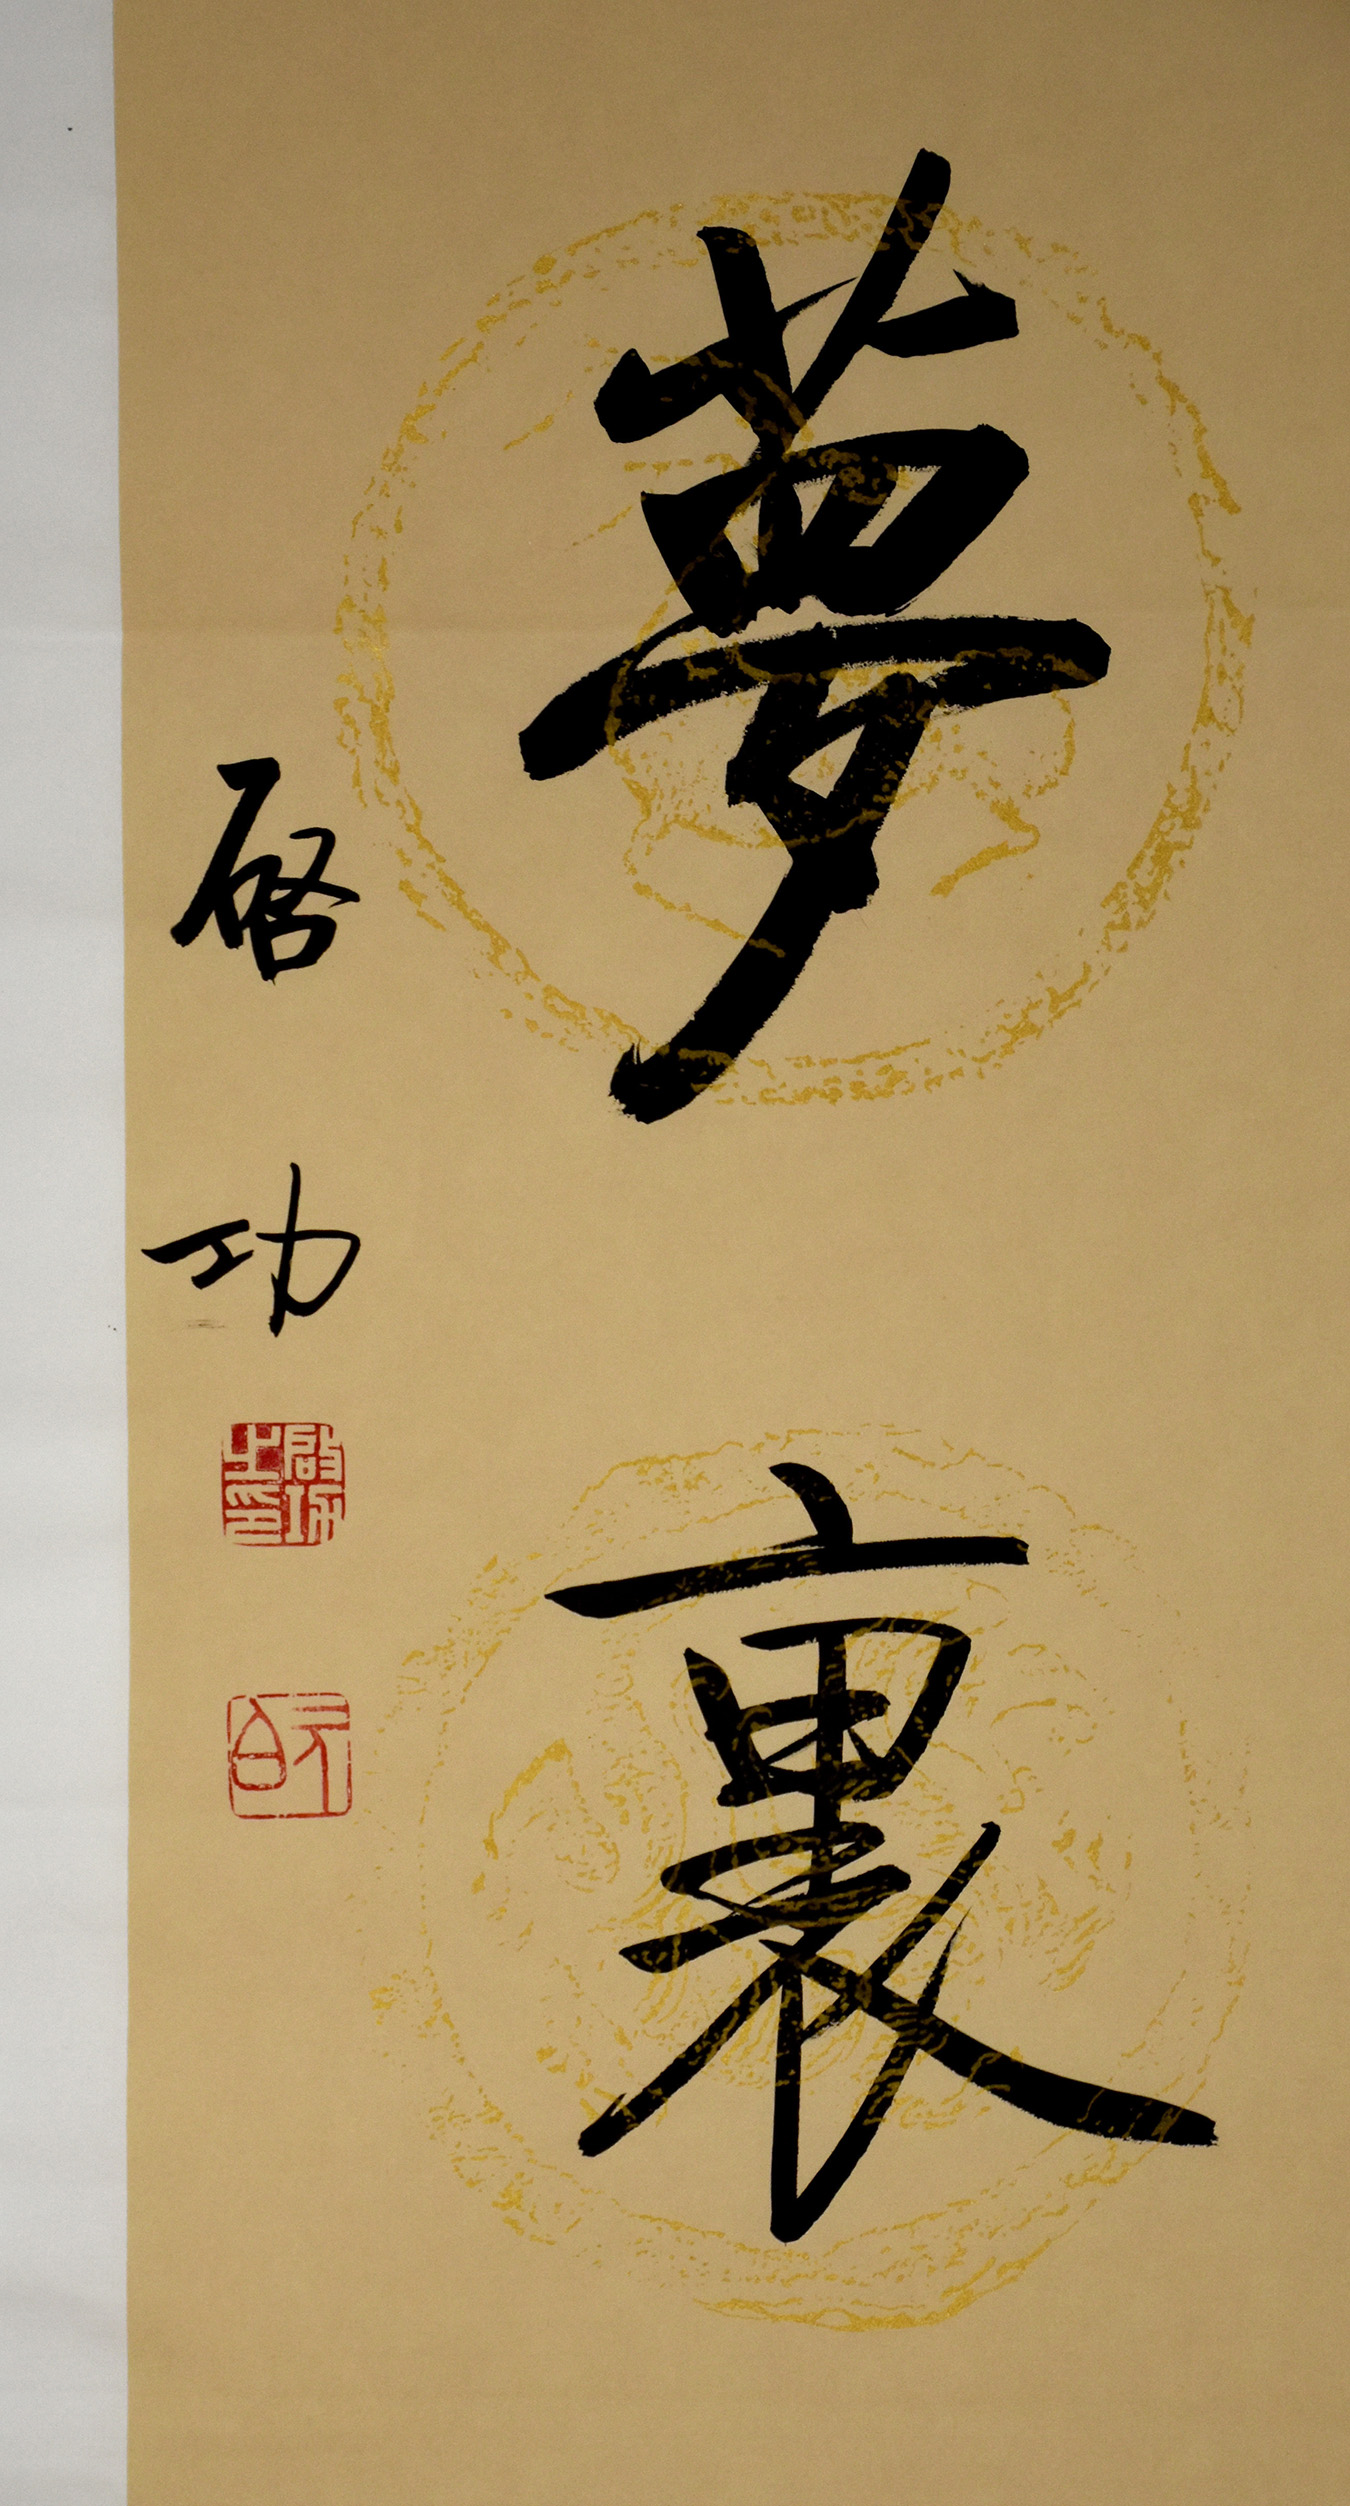 夢裏
啓功
啓功之印
元白